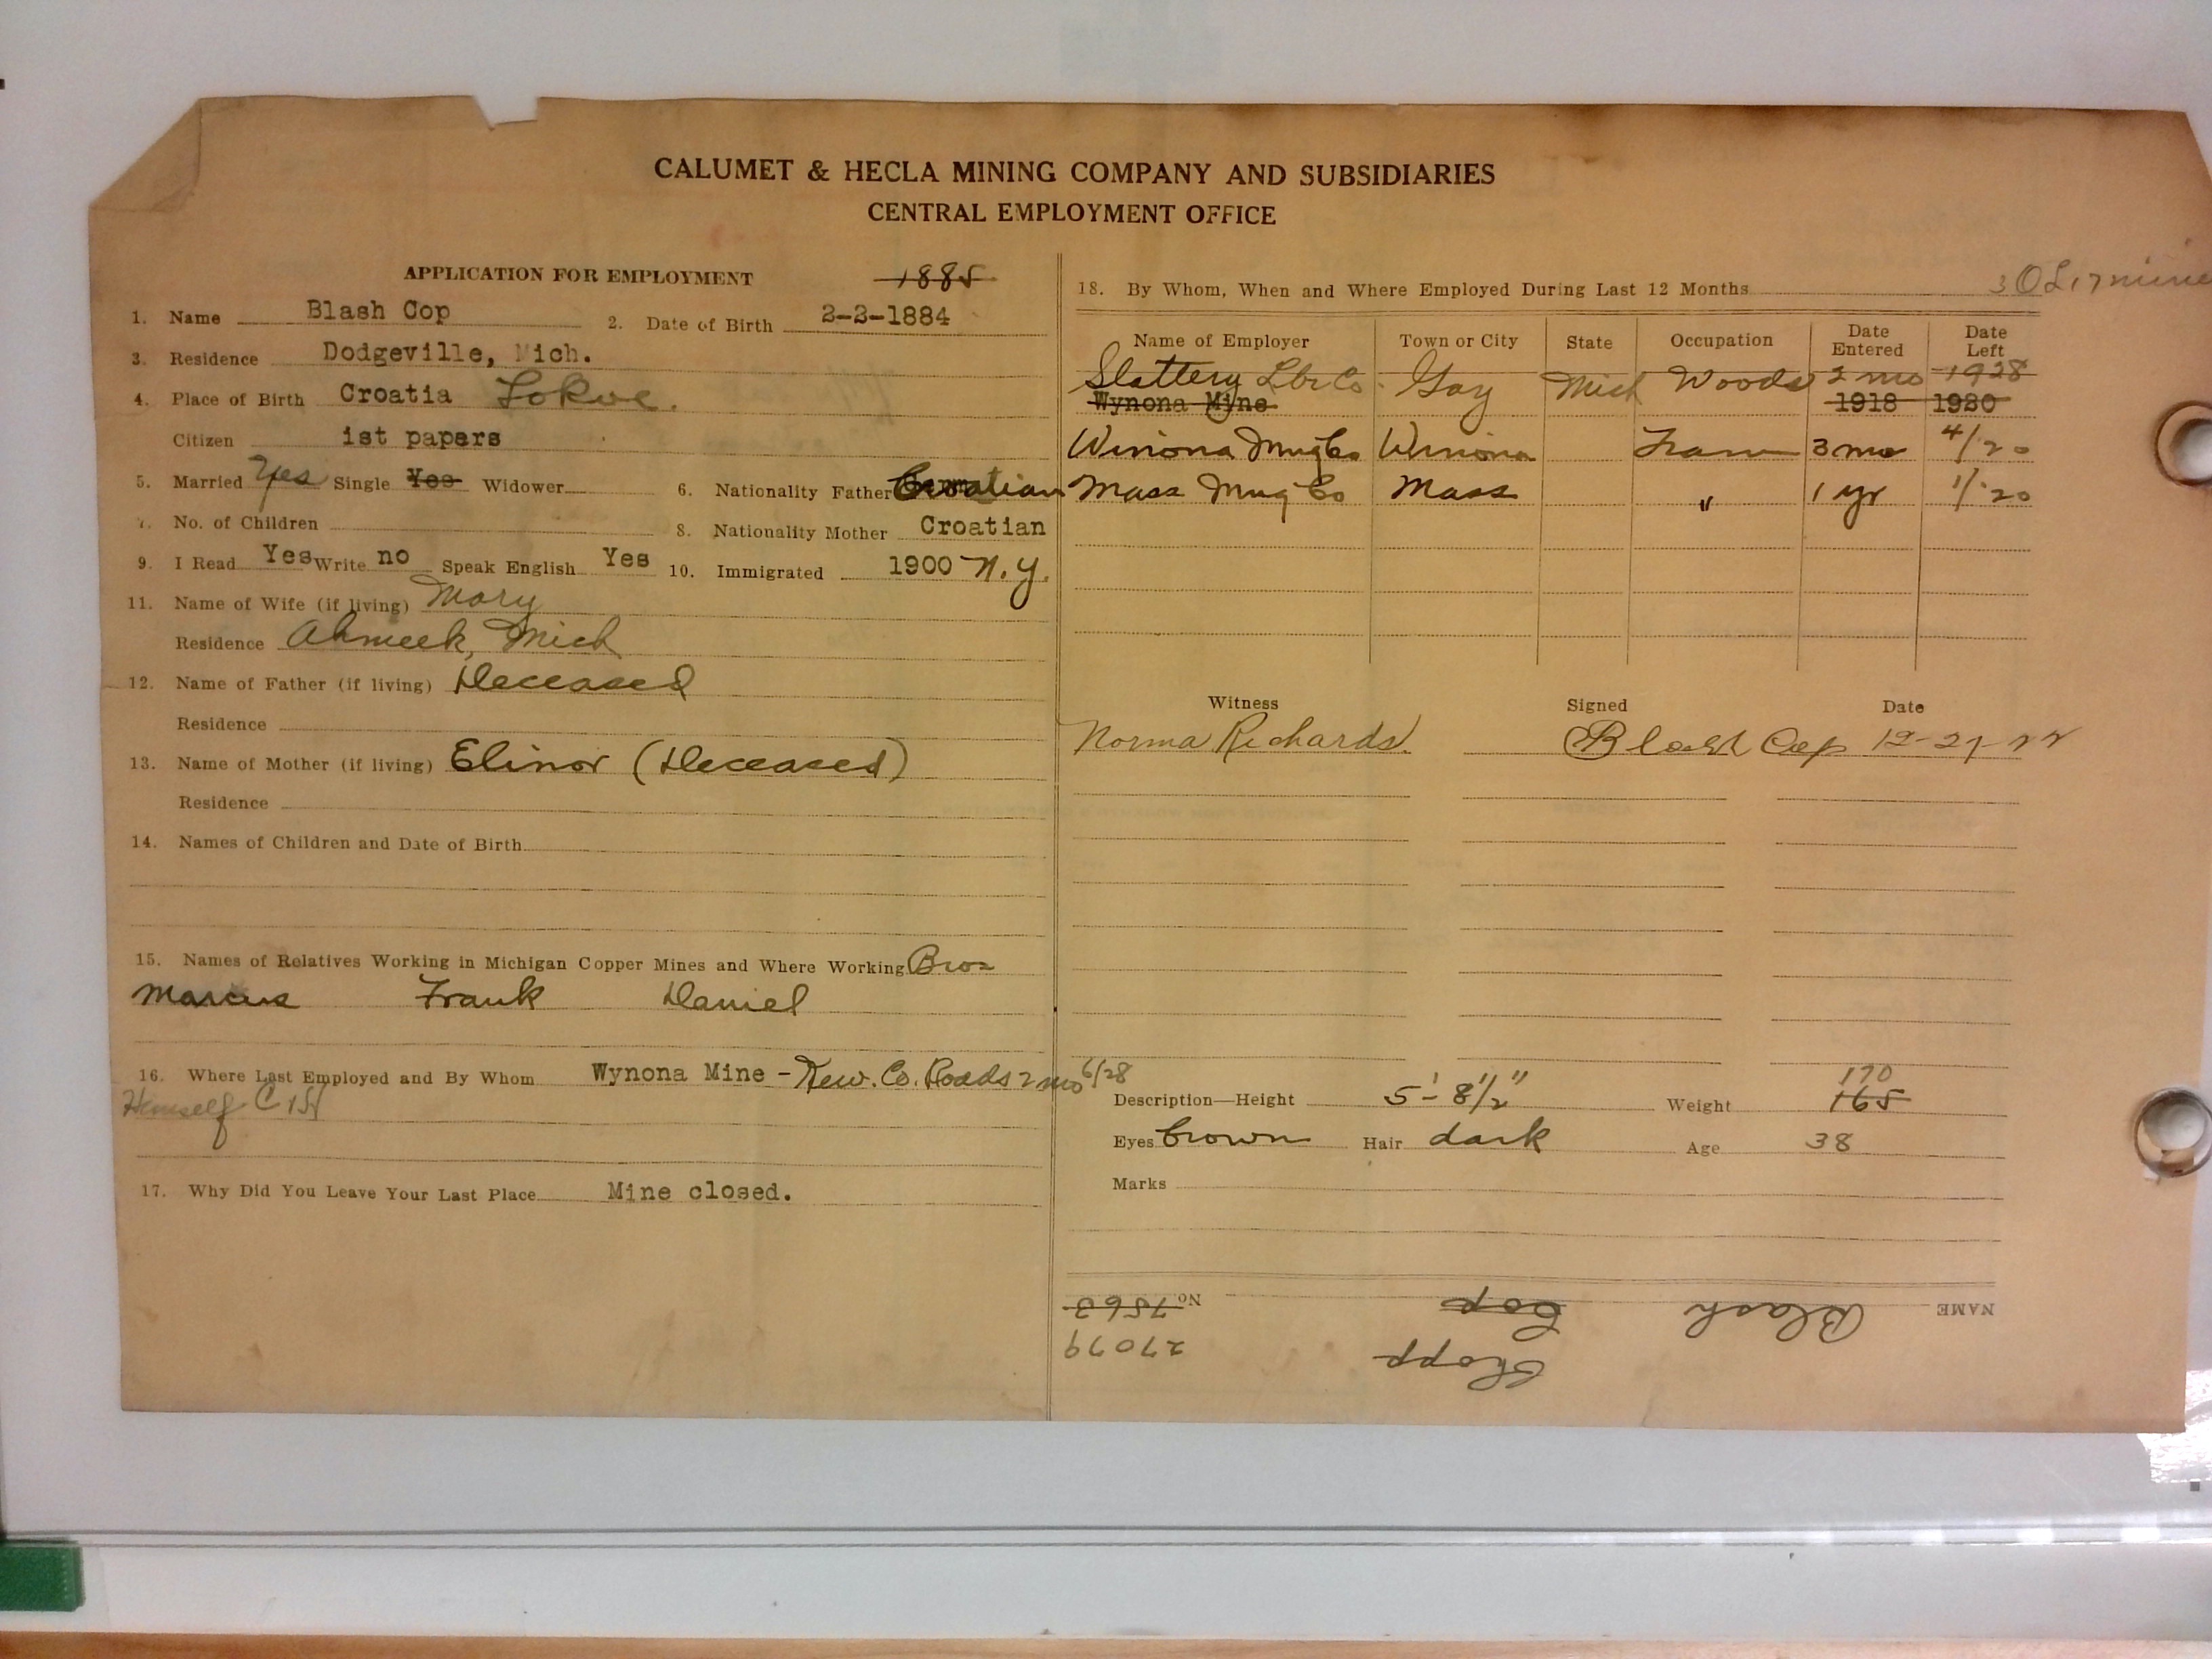 CALUMET & HECLA MINING COMPANY AND SUBSIDIARIES
CENTRAL EMPLOYMENT OFFICE
APPLICATION FOR EMPLOYMENT 1885
1. Name Blash Cop 2. Date of Birth 2-2-1884
3. Residence Dodgeville, Mich.
4. Place of Birth Croatia Lokve.
Citizen 1st papers
5. Married Yes Single Yes Widower 6. Nationality Father Croatian
7. No. of Children 8. Nationality Mother Croatian
9. I Read Yes Write no Speak English Yes 10. Immigrated 1900 N.Y.
11. Name of Wife (if living) Mary
Residence Ahmeek, Mich
12. Name of Father (if living) Deceased
Residence
13. Name of Mother (if living) Elinor (Deceased)
Residence
14. Names of Children and Date of Birth
15. Names of Relatives Working in Michigan Copper Mines and Where Working Bros
Marcus Frank Daniel
16. Where Last Employed and By Whom Wynona Mine - Kew. Co. Roads 2 mo 6/28
Himself
17. Why Did You Leave Your Last Place Mine closed.
18. By Whom, When and Where Employed During Last 12 Months
Name of Employer Town or City State Occupation Date Entered Date Left
Slattery Lbr Co. Gay Mich Woods 2 mo 1928
Wynona Mine 1918 1920
Winona Mng Co Winona Tram 3 mo 4/20
Mass Mng Co Mass " 1 yr 1/20
Witness Signed Date
Norma Richards. Blash Cop 12-27-22
170
Description—Height 5'-8 1/2" Weight 165
Eyes brown Hair dark Age 38
Marks
NAME Blash Cop No 7563
Chopp 27079